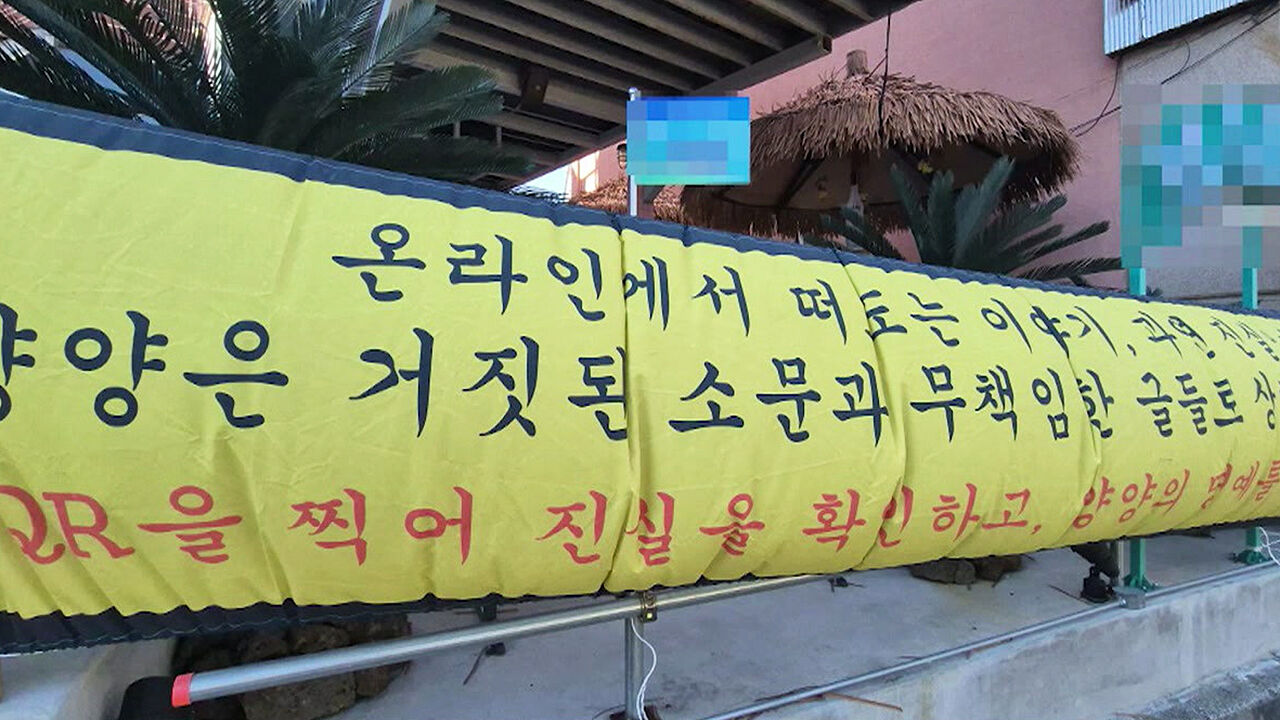 온라인에서 떠도는 이야기, 과연 진실
양양은 거짓된 소문과 무책임한 글들로 상
QR을 찍어 진실을 확인하고, 양양의 명예를